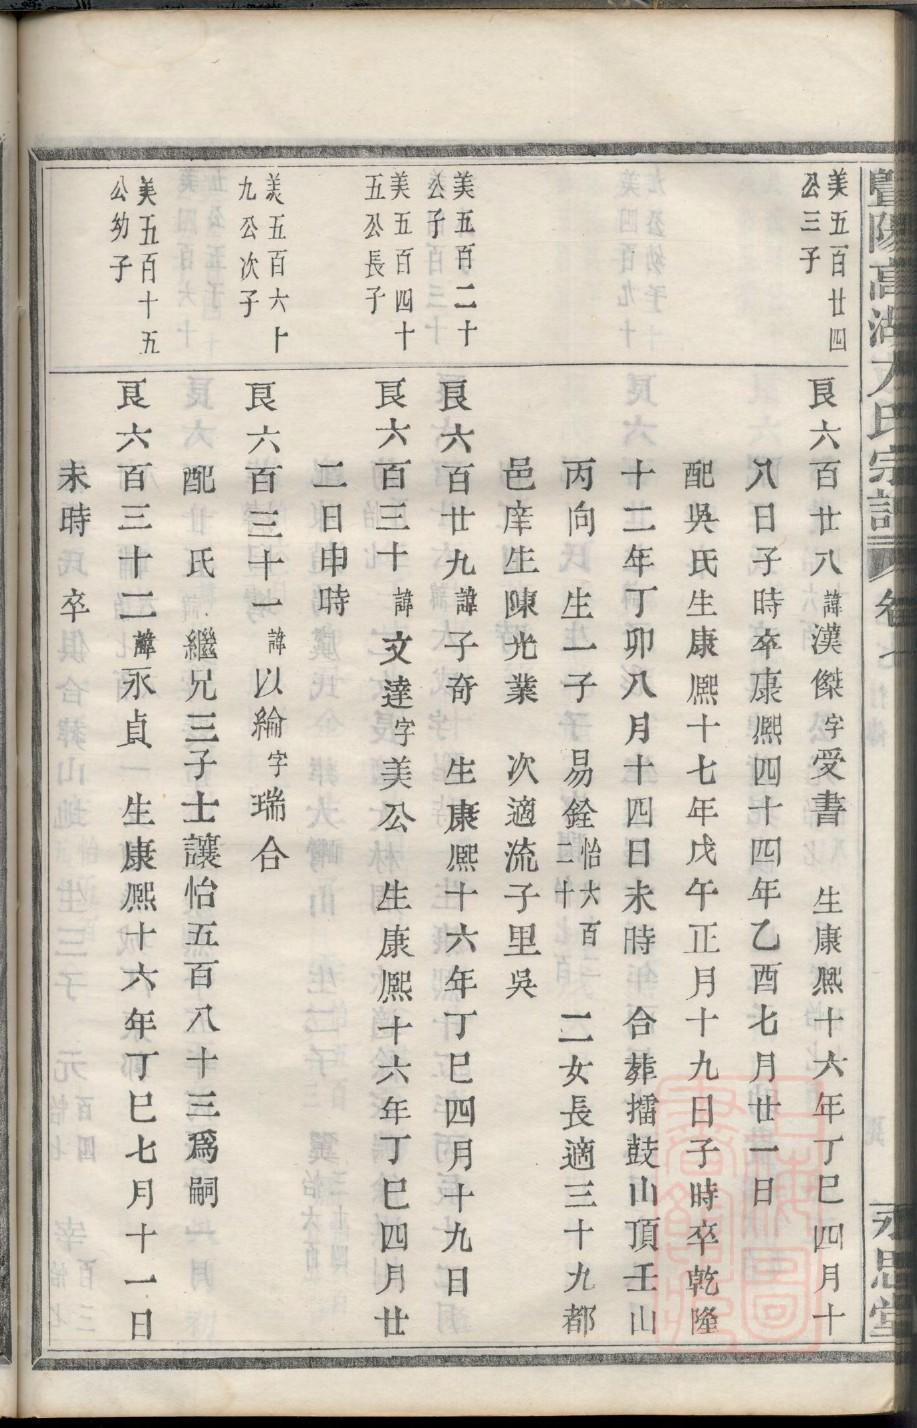 暨陽高湖方氏宗譜 卷七 永思堂
美五百廿四
公三子
艮六百廿八諱漢傑字受書 生康熈十六年丁巳四月十
八日子時卒康熈四十四年乙酉七月廿一日
配吳氏生康熈十七年戊午正月十九日子時卒乾隆
十二年丁卯八月十四日未時 合葬擂鼓山頂壬山
丙向 生一子 易銓怡六百二十 二女長適三十九都
邑庠生陳光業 次適流子里吳
美五百二十
公子
艮六百廿九諱子奇 生康熈十六年丁巳四月十九日
美五百四十
五公長子
艮六百三十諱文達字美公 生康熈十六年丁巳四月廿
二日申時
美五百六十
九公次子
艮六百三十一諱以綸字瑞合
配 氏 繼兄三子士讓怡五百八十三爲嗣
美五百十五
公幼子
艮六百三十二諱永貞 生康熈十六年丁巳七月十一日
未時卒